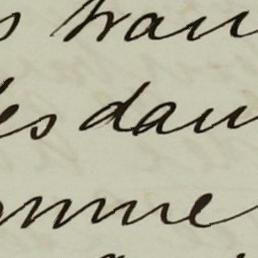 s tran
les dan
omme